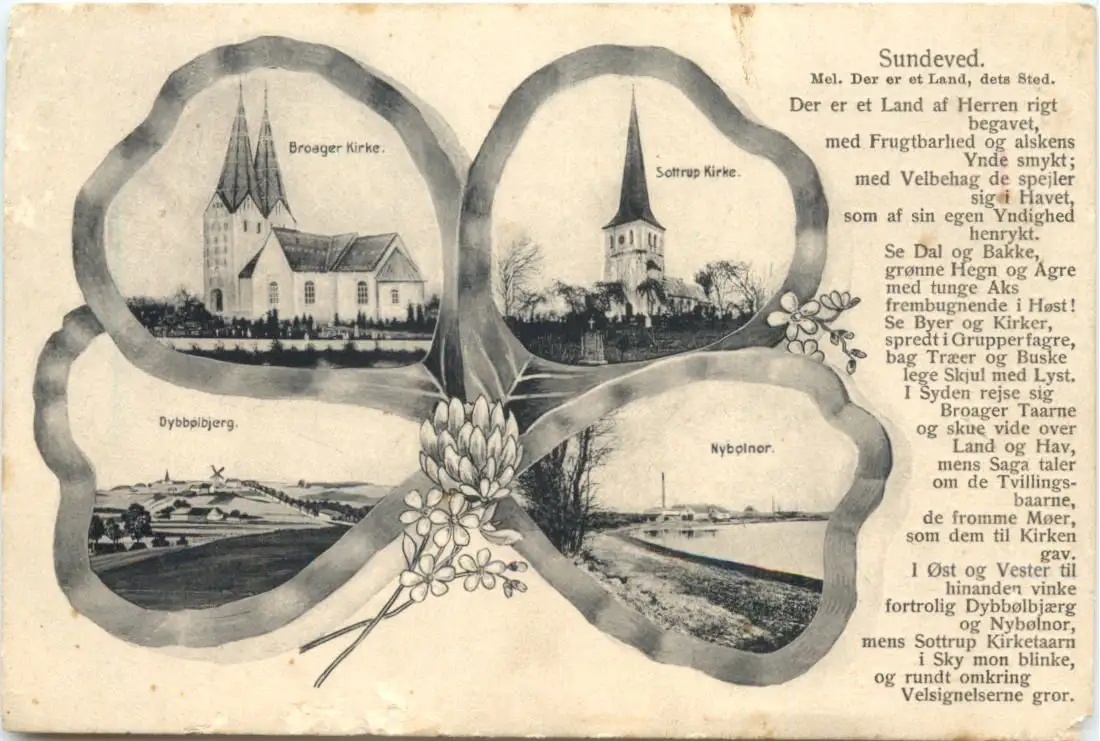 Broager Kirke.
Sottrup Kirke.
Dybbølbjerg.
Nybølnor.
Sundeved.
Mel. Der er et Land, dets Sted.
Der er et Land af Herren rigt
begavet,
med Frugtbarhed og alskens
Ynde smykt;
med Velbehag de spejler
sig i Havet,
som af sin egen Yndighed
henrykt.
Se Dal og Bakke,
grønne Hegn og Agre
med tunge Aks
frembugnende i Høst!
Se Byer og Kirker,
spredt i Grupper fagre,
bag Træer og Buske
lege Skjul med Lyst.
I Syden rejse sig
Broager Taarne
og skue vide over
Land og Hav,
mens Saga taler
om de Tvillings-
baarne,
de fromme Møer,
som dem til Kirken
gav.
I Øst og Vester til
hinanden vinke
fortrolig Dybbølbjærg
og Nybølnor,
mens Sottrup Kirketaarn
i Sky mon blinke,
og rundt omkring
Velsignelserne gror.